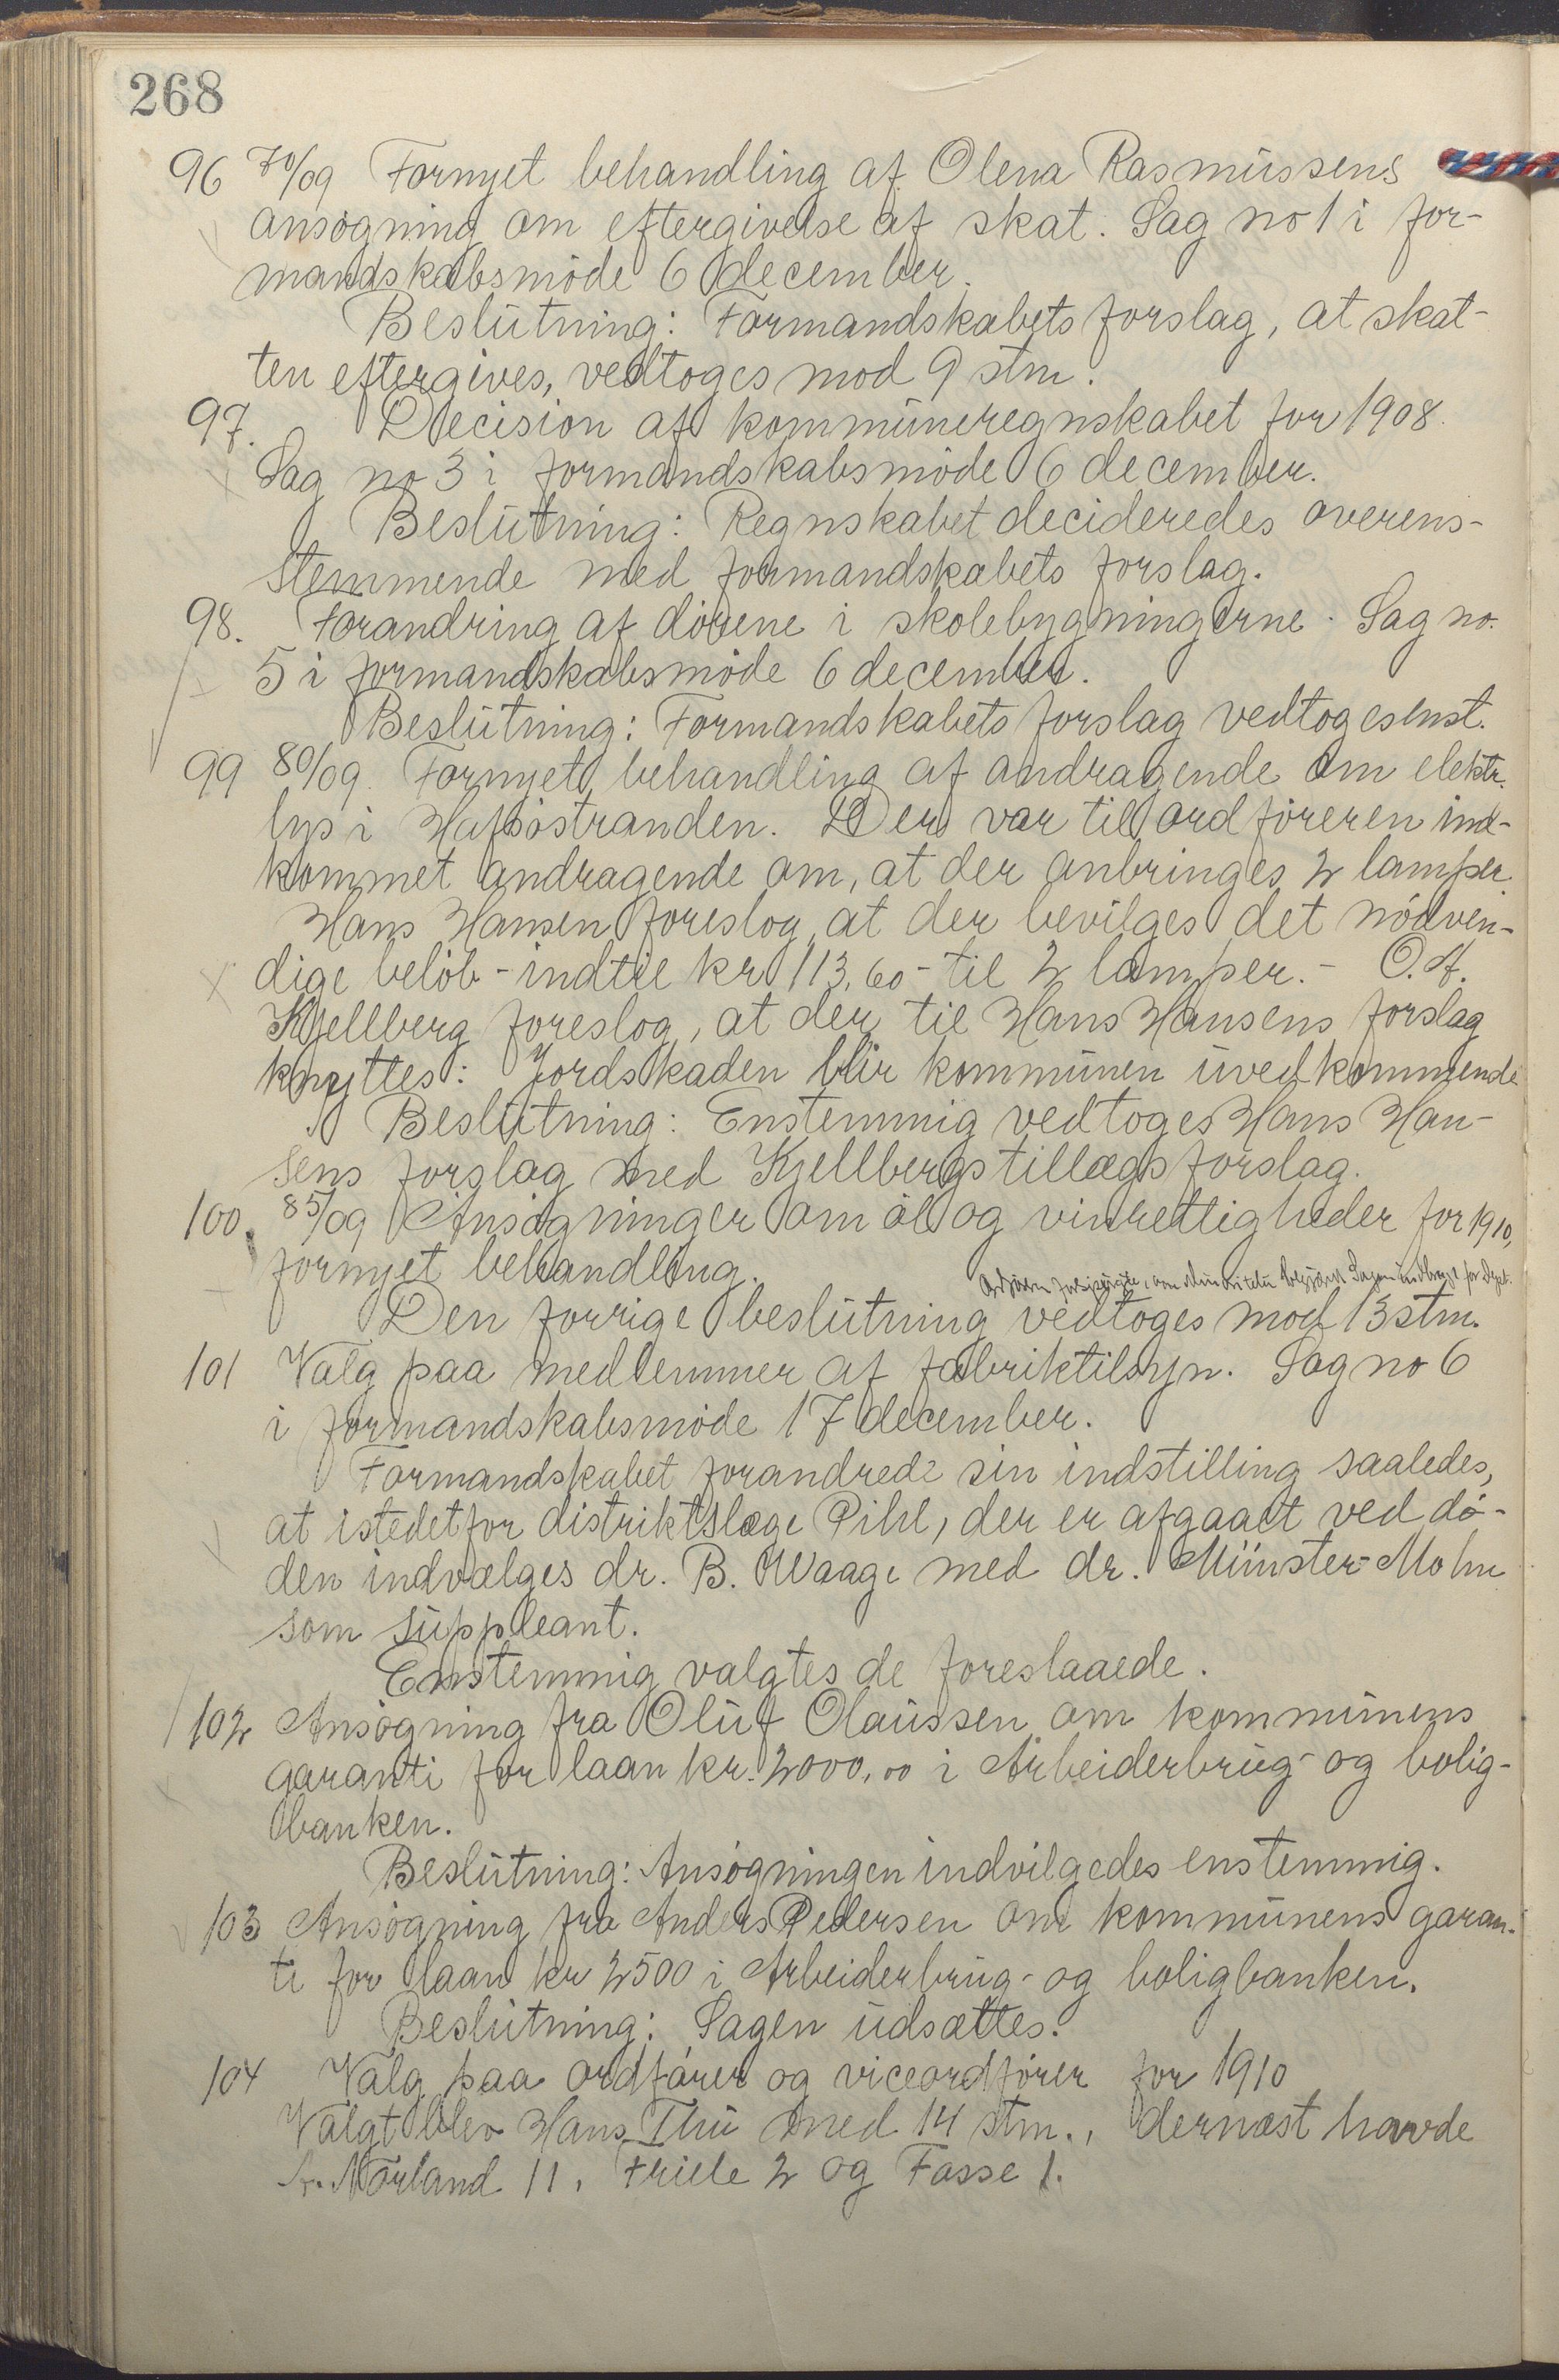 268
96 70/09 Fornyet behandling af Olena Rasmussens
ansøgning om eftergivelse af skat. Sag no 1 i for-
mandskabsmøde 6 december.
Beslutning: Formandskabets forslag, at skat-
ten eftergives, vedtoges mod 9 stm.
97. Decision af kommuneregnskabet for 1908.
Sag no 3 i formandskabsmøde 6 december.
Beslutning: Regnskabet decideredes overens-
stemmende med formandskabets forslag.
98. Forandring af dørene i skolebygningerne. Sag no.
5 i formandskabsmøde 6 december.
Beslutning: Formandskabets forslag vedtoges enst.
99 80/09. Fornyet behandling af andragende om elektr.
lys i Hafsøstranden. Der var til ordføreren ind-
kommet andragende om, at der anbringes 2 lamper.
Hans Hansen foreslog, at der bevilges det nødven-
dige beløb - indtil kr 113,60 - til 2 lamper. - O. A.
Kjellberg foreslog, at der til Hans Hansens forslag
knyttes: Jordskaden blir kommunen uvedkommende
Beslutning: Enstemmig vedtoges Hans Han-
sens forslag med Kjellbergs tillægsforslag.
100. 85/09 Ansøgninger om øl og vinrettigheder for 1910,
fornyet behandling.
Sagen indbragt for Dept.
Den forrige beslutning vedtoges mod 13 stm.
101 Valg paa medlemmer af fabriktilsyn. Sag no 6
i formandskabsmøde 17 december.
Formandskabet forandrede sin indstilling saaledes,
at istedetfor distriktslæge Pihl, der er afgaaet ved dø-
den indvælges dr. B. Waage med dr. Münster-Mohn
som suppleant.
Enstemmig valgtes de foreslaaede.
102 Ansøgning fra Oluf Olaussen om kommunens
garanti for laan kr. 2000,00 i Arbeiderbrug- og bolig-
banken.
Beslutning: Ansøgningen indvilgedes enstemmig.
103 Ansøgning fra Anders Pedersen om kommunens garan-
ti for laan kr 2500 i Arbeiderbrug- og boligbanken.
Beslutning: Sagen udsættes.
104 Valg paa ordfører og viceordfører for 1910
Valgt blev Hans Thu med 14 stm., dernæst havde
A. Nørland 11, Friele 2 og Fasse 1.